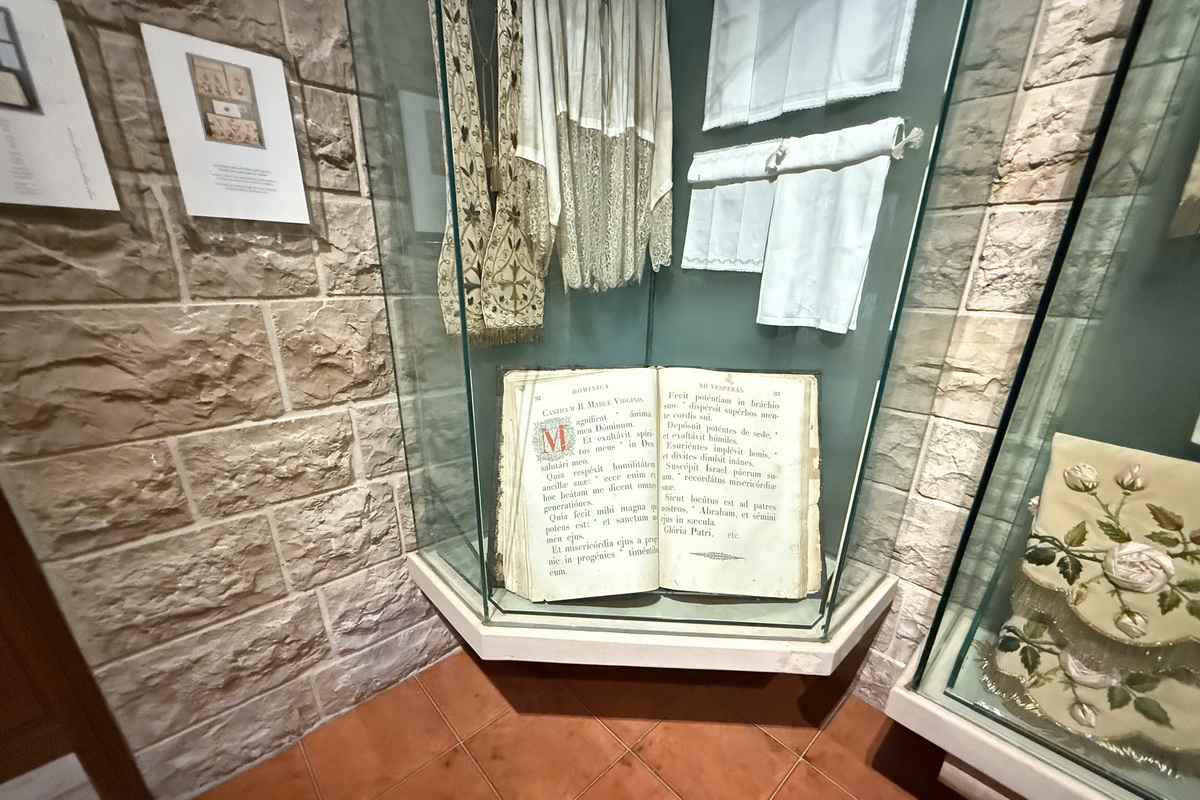 92
DOMINICA
CANTICUM B. MARIÆ VIRGINIS.
Magnificat * ánima
mea Dóminum.
Et exultávit spiri-
tus meus * in Deo
salutári meo.
Quia respéxit humilitátem
ancíllæ suæ: * ecce enim e
hoc beátam me dicent omn
generatiónes.
Quia fecit mihi magna q
potens est: * et sanctum n
men ejus.
Et misericórdia ejus a prog
nie in progénies * timéntib
eum.
AD VESPERAS.
93
Fecit poténtiam in bráchio
suo: * dispérsit supérbos men-
te cordis sui.
Depósuit poténtes de sede, *
et exaltávit húmiles.
Esuriéntes implévit bonis, *
et dívites dimísit inánes.
Suscépit Israel púerum su-
um, * recordátus misericórdiæ
suæ.
Sicut locútus est ad patres
nostros, * Abraham, et sémini
ejus in sæcula.
Glória Patri, etc.